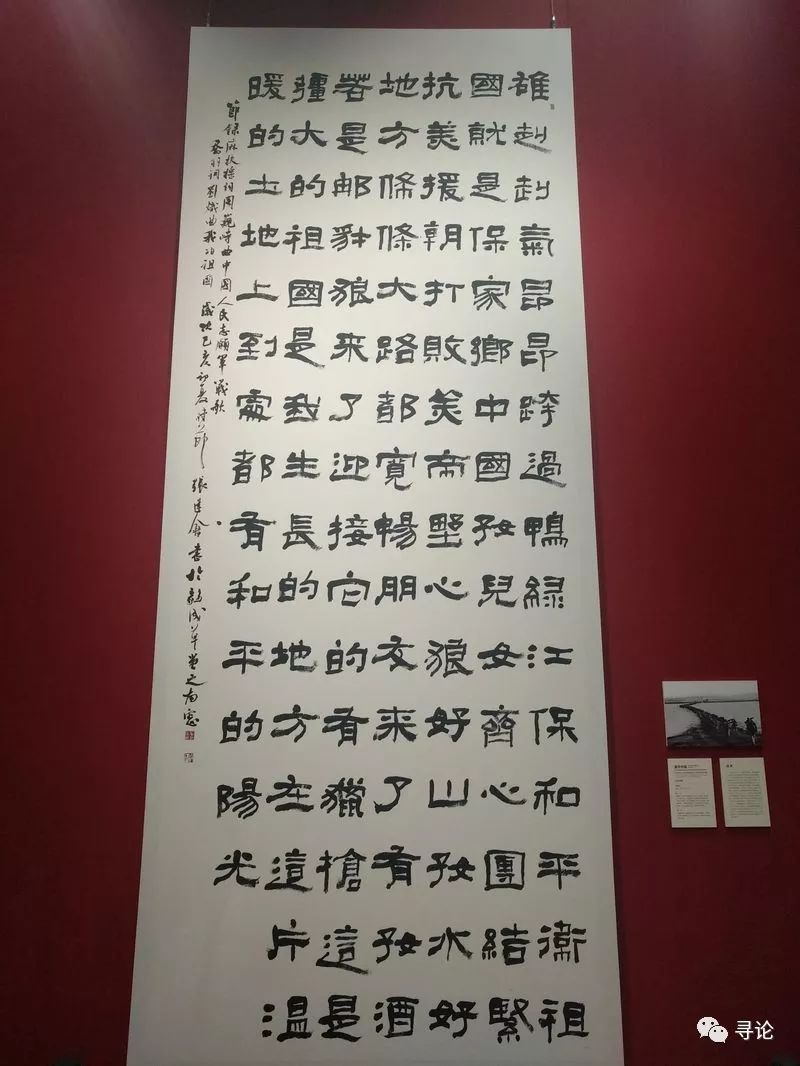 雄赳赳氣昂昂跨過鴨綠江保和平衛祖
國就是保家鄉中國好兒女齊心團結緊
抗美援朝打敗美帝野心狼好山好水好
地方條條大路都寬暢朋友來了有好酒
若是那豺狼來了迎接它的有獵槍這是
彊大的祖國是我生長的地方在這片溫
暖的土地上到處都有和平的陽光
節錄麻扶搖詞周巍峙曲中國人民志願軍戰歌
喬羽詞劉熾曲我的祖國 歲次己亥初夏時節 張建會書於 草堂之南窗
寻论